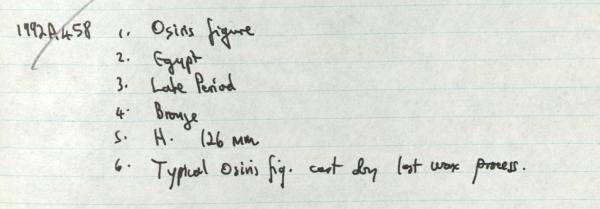 1992A458 1. Osiris figure
2. Egypt
3. Late Period
4. Bronze
5. H. 126 mm
6. Typical Osiris fig. cast by lost wax process.